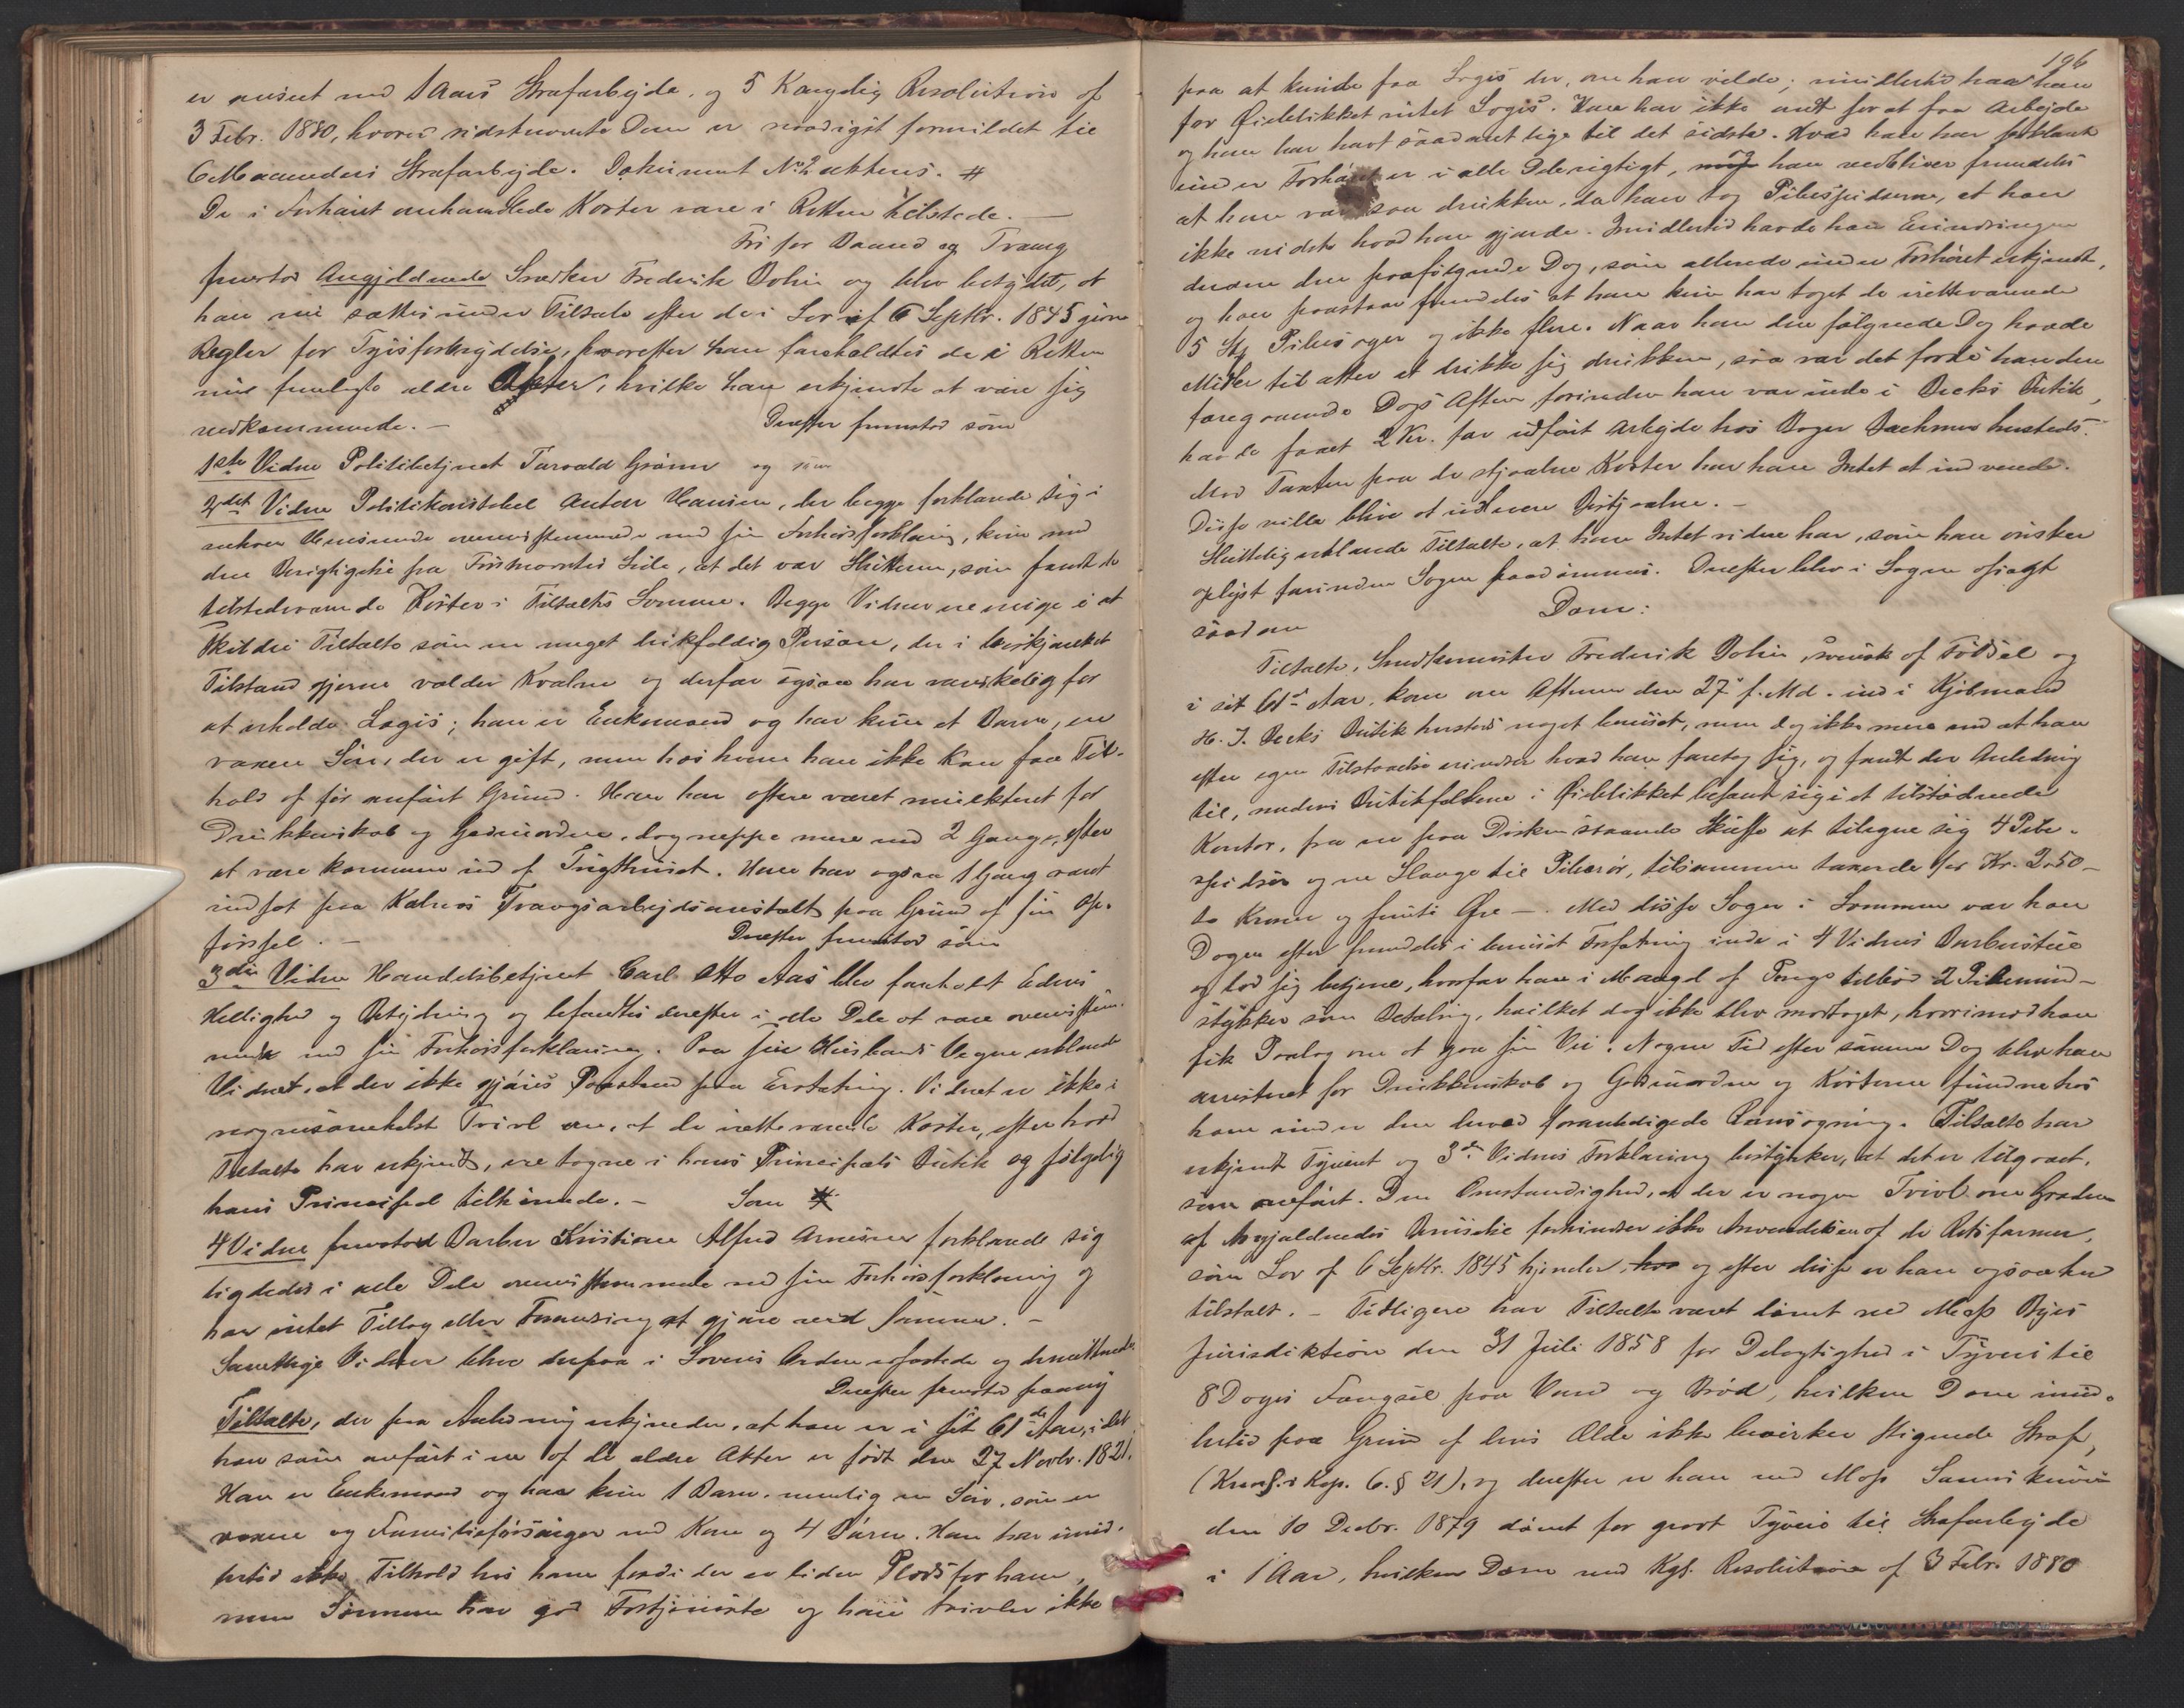 er anseet med 1 Aars Strafarbejde, og 5 Kongelig Resolution af
3 Febr. 1880, hvorved sidstnævnte Dom er naadigst formildet til
6 Maaneders Strafarbejde. Dokument No 2 aktens. #
De i Forhøret omhandlede Koster vare i Retten tilstede. —
Fri for Baand og Tvang
fremstod Angjeldende Snedker Frederik Bohin og blev betydet, at
han nu sættes under Tiltale efter de i Lov af 6 Septbr. 1845 givne
Regler for Tyvsforbrydelse, hvorefter han foreholdtes de i Retten
nu fremlagte ældre Akter, hvilke han erkjendte at være sig
vedkommende. — Derefter fremstod som
1ste Vidne Politibetjent Torvald Grønn og som
2det Vidne Politikonstabel Anton Hansen, der begge forklarede sig i
enhver Henseende overensstemmende med sin Forhørsforklaring, kun med
den Berigtigelse fra Førstnævntes Side, at det var Skikkeren, som fandt de
tilstedeværende Koster i Tiltaltes Lomme. Begge Vidner ere enige i at
skildre Tiltalte som en meget drikfældig Person, der i beskjænket
Tilstand gjerne volder Kvalm og derfor ogsaa har vanskelig for
at erholde Logis; han er Enkemand og har kun et Barn, en
voxen Søn, der er gift, men hos hvem han ikke kan faa Til-
hold af før anført Grund. Han har oftere været mulkteret for
Drukkenskab og Gadeuorden, dog neppe mere end 2 Gange, efter
at være kommen ud af Tugthuset. Han har ogsaa 1 Gang været
indsat paa Kalvøs Tvangsarbejdsanstalt paa Grund af sin Op-
førsel. — Derefter fremstod som
3die Vidne Handelsbetjent Carl Otto Aas blev foreholdt Edens
Hellighed og Betydning og befandtes derefter i alle Dele at være overensstem-
mende med sin Forhørsforklaring. Paa sin Husbonds Vegne erklærede
Vidnet, at der ikke gjøres Paastand paa Erstatning. Vidnet er ikke i
nogensomhelst Tvivl om, at de iretteværende Koster, efter hvad
Tiltalte har erkjendt, ere tagne i hans Principals Butik og følgelig
hans Principal tilhørende. — Som
4 Vidne fremstod Barber Kristian Alfred Arnesen forklarede sig
ligeledes i alle Dele overensstemmende med sin Forhørsforklaring og
har intet Tillæg eller Forandring at gjøre ved samme. —
Samtlige Vidner blev derpaa i Lovens Orden edfæstede og demitterede
Derefter fremstod paany
Tiltalte, der paa Anledning erkjender, at han er i sit 61de Aar, idet
han som anført i en af de ældre Akter er født den 27 Novbr. 1821.
Han er Enkemand og har kun 1 Barn, nemlig en Søn, som er
voxen og Familieforsørger med Kone og 4 Børn. Han har imid-
lertid ikke Tilhold hos ham fordi der er liden Plads for ham,
men Sønnen har god Fortjeneste og han tvivler ikke
196
paa at kunde faa Logis der, om han vilde; imidlertid har han
for Øieblikket intet Logis. Han har ikke ondt for at faa Arbejde
og han har havt saadant lige til det sidste. Hvad han har forklaret
under Forhøret er i alle Dele rigtigt, og han vedbliver fremdeles
at han var saa drukken, da han tog Pibespidserne, at han
ikke vidste hvad han gjorde. Imidlertid havde han Erindringen
derom den paafølgende Dag, som allerede under Forhøret erkjendt,
og han paastaar fremdeles at han kun har taget de iretteværende
5 Stk Pibesager og ikke flere. Naar han den følgende Dag havde
Midler til atter at drikke sig drukken, saa var det fordi han den
foregaaende Dags Aften forinden han var inde i Becks Butik,
havde faaet 2 Kr. for udført Arbejde hos Bager Bachmer hersteds.
Mod Taxten paa de stjaalne Koster har han Intet at indvende.
Disse ville blive at udlevere Bestjaalne. —
Sluttelig erklærede Tiltalte, at han Intet videre har, som han ønsker
oplyst forinden Sagen paadømmes. Derefter blev i Sagen afsagt
saadan
Dom:
Tiltalte, Snedkermester Frederik Bohin, svensk af Fødsel og
i sit 61de Aar, kom om Aftenen den 27de f. Md. ind i Kjøbmand
H. J. Becks Butik hersteds noget beruset, men dog ikke mere end at han
efter egen Tilstaaelse erindrer hvad han foretog sig, og fandt der Anledning
til, medens Butikfolkene i Øieblikket befandt sig i et tilstødende
Kontor, fra en paa Disken staaende Skuffe at tilegne sig 4 Pibe-
spidser og en Slange til Piberør, tilsammen taxerede for Kr. 2.50 —
to Kroner og femti Øre —. Med disse Sager i Lommen var han
Dagen efter fremdeles i beruset Forfatning inde i 4 Vidnes Barberstue
og lod sig betjene, hvorfor han i Mangel af Penge tilbød 2 Pibemund-
stykker som Betaling, hvilket dog ikke blev modtaget, hvorimod han
fik Paalæg om at gaa sin Vei. Nogen Tid efter samme Dag blev han
arresteret for Drukkenskab og Gadeuorden og Kosterne fundne hos
ham under den herved foranledigede Ransagning. Tiltalte har
erkjendt Tyveriet og 3die Vidnes Forklaring bestyrker, at det er tilgaaet,
som anført. Den Omstændighed, at der er nogen Tvivl om Graden
af Angjeldendes Beruselse forhindrer ikke Anvendelsen af de Retsformer,
som Lov af 6 Septbr. 1845 hjemler, og efter disse er han ogsaa her
tiltalt. — Tidligere har Tiltalte været dømt ved Moss Byes
Jurisdiktion den 31 Juli 1858 for Delagtighed i Tyveri til
8 Dages Fængsel paa Vand og Brød, hvilken Dom imid-
lertid paa Grund af dens Ælde ikke bevirker stigende Straf,
(Krmsl.s Kap. 6. § 21), og derefter er han ved Moss
den 10 Decbr. 1879 dømt for grovt Tyveri til Strafarbejde
i 1 Aar, hvilken Dom ved Kgl. Resolution af 3 Febr. 1880